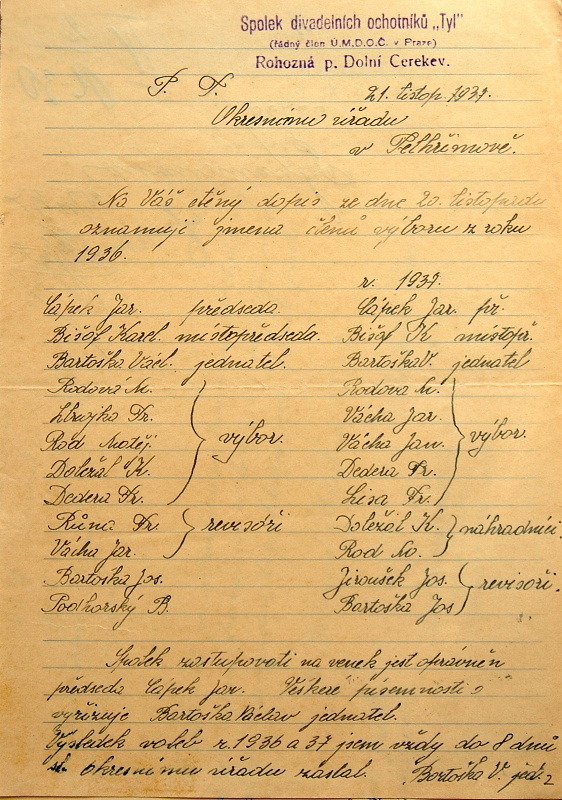 Spolek divadelních ochotníků „Tyl"
(řádný člen Ú.M.D.O.Č. v Praze)
Rohozná p. Dolní Cerekev.
P. T. 21. listop. 1937.
Okresnímu úřadu
v Pelhřimově.
Na Váš ctěný dopis ze dne 20. listopadu
oznamuji jmena členů výboru z roku
1936.
r. 1937.
Cápek Jar. předseda. Cápek Jar. př.
Bišof Karel. místopředseda. Bišof K místopř.
Bartoška Václ. jednatel. Bartoška V. jednatel
Rodová M. Rodova M.
Fr. Vácha Jar.
Rod Matěj. výbor. Vácha Jan. výbor.
Doležál K. Dedera Fr.
Dedera Fr. Lisa Fr.
Růna Fr. revisóři Doležál K. náhradníci.
Vácha Jar. Rod M.
Bartoška Jos. Jiroušek Jos. revisoři.
Podhorský B. Bartoška Jos
Spolek zastupovati na venek jest oprávněn
předseda Cápek Jar. Veškeré písemnosti
vyřizuje Bartoška Václav jednatel.
Výsledek voleb r. 1936 a 37 jsem vždy do 8 dnů
Okresnímu úřadu zaslal. Bartoška V. jed.